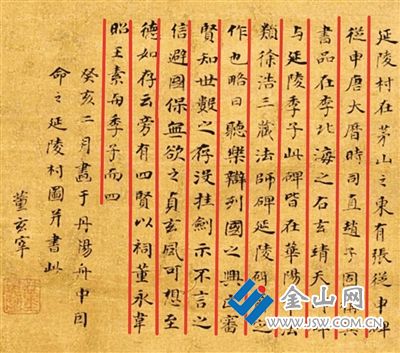 延陵村在茅山之東有張從申碑
從申唐大曆時司直趙子固稱其
書品在李北海之右玄靖天師碑
与延陵季子此碑皆在華陽
法
類徐浩三藏法師碑延陵碑蕭
作也略曰聽樂辯列國之興亡審
賢知世數之存没挂劍示不言之
信避國保無欲之貞玄風可想至
德如存云旁有四賢以祠董永韋
昭王素向季子而四
癸亥二月畫于丹陽舟中因
命之延陵村圖并書此
董玄宰
金山网
www.